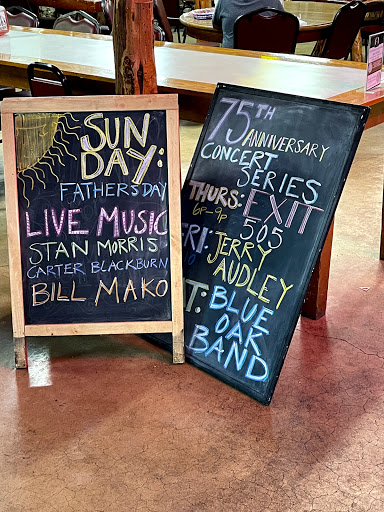 SUN
DAY:
FATHERS DAY
LIVE MUSIC
STAN MORRIS
CARTER BLACKBURN
BILL MAKO
75TH
ANNIVERSARY
CONCERT
SERIES
THURS: EXIT
6P-9P 505
RI: JERRY
AUDLEY
T: BLUE
OAK
BAND